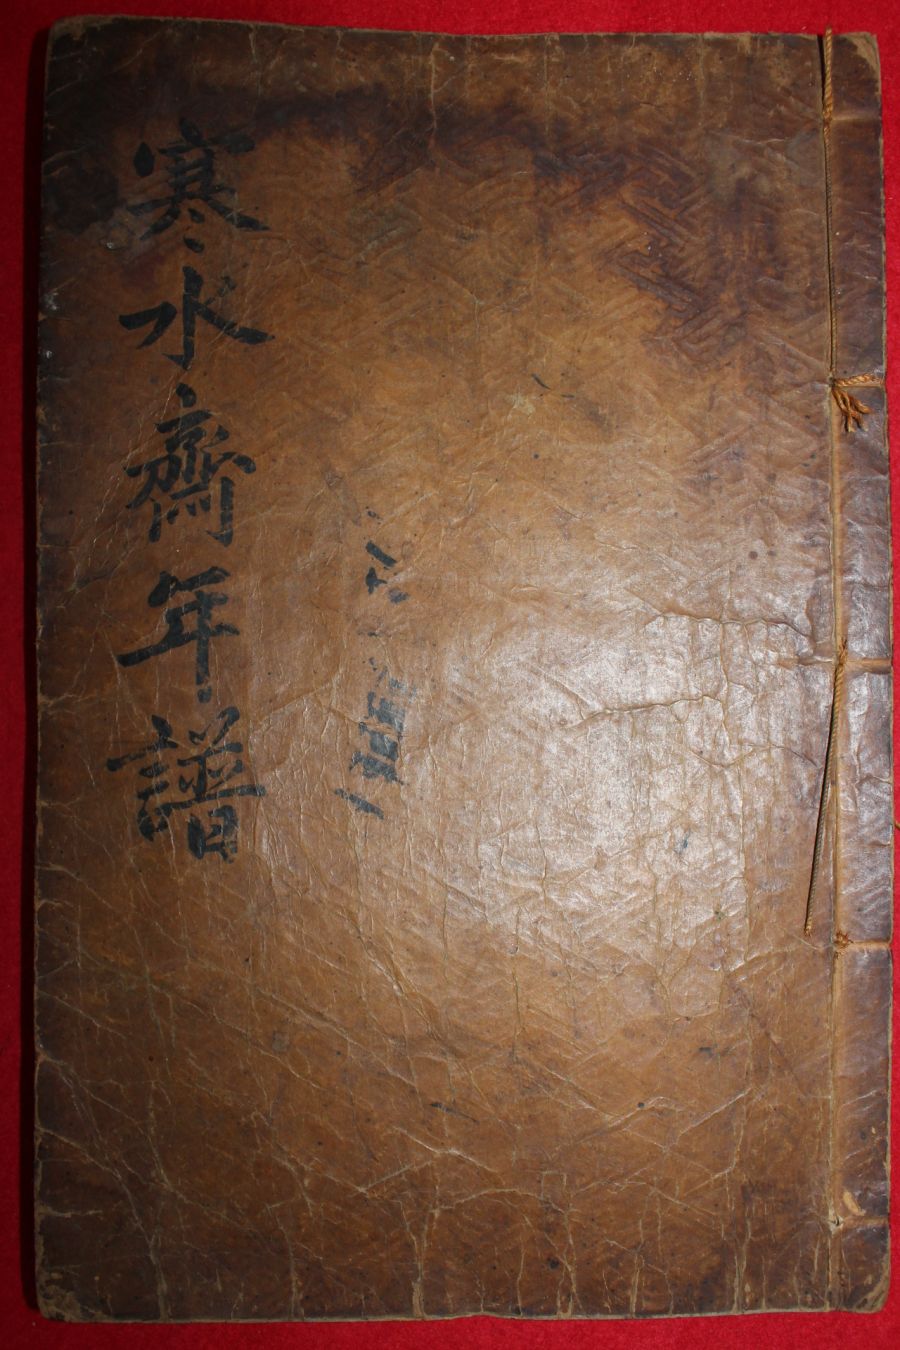 寒水齋年譜